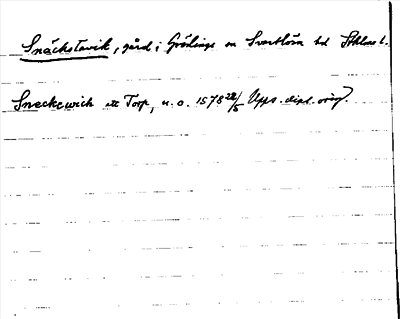 Snäckstavik, gård i Grödinge sn Svartlösa hd Sthlms l.
Sneckewich ett Torp, u. o. 1578 22/5 Upps. dipl. orig.